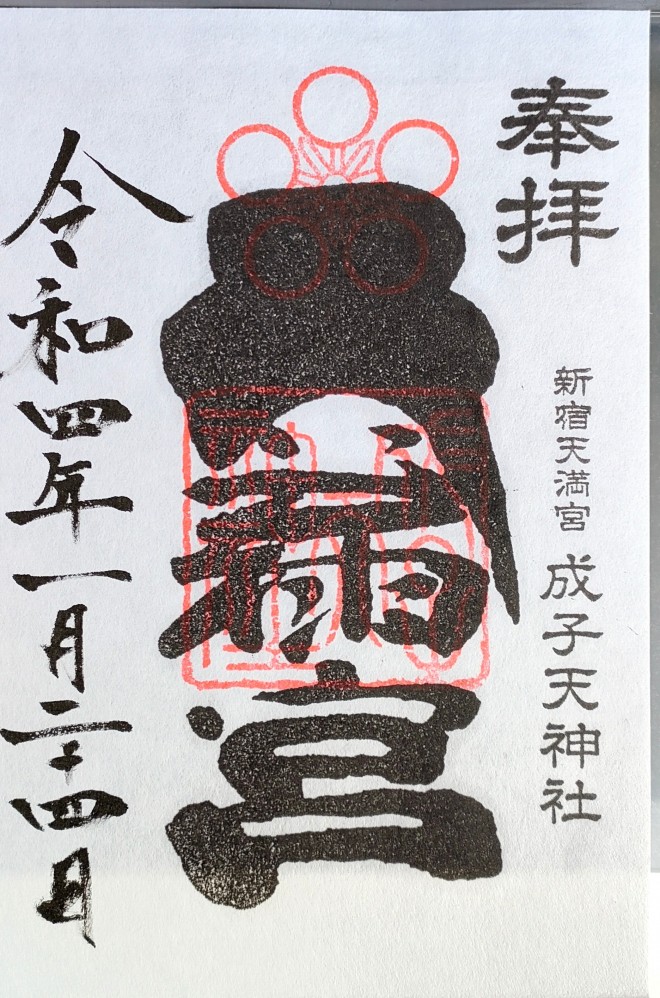 奉拝
新宿天満宮 成子天神社
宮
令和四年一月二十四日